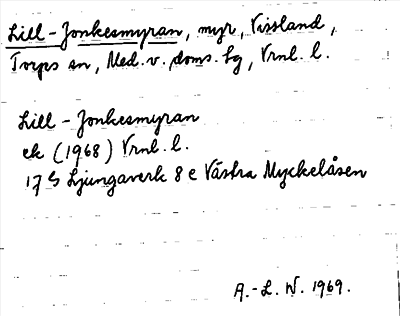 Lill-Jonkesmyran, myr, Vissland,
Torps sn, Med. v. doms. sg, Vrnl. l.
Lill-Jonkesmyran
ek (1968) Vrnl. l.
17 G Ljungaverk 8 e Västra Myckelåsen
A.-L. W. 1969.